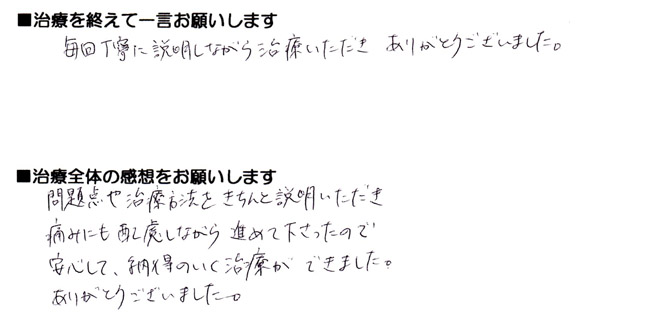 ■治療を終えて一言お願いします
毎回丁寧に説明しながら治療いただき ありがとうございました。
■治療全体の感想をお願いします
問題点や治療方法をきちんと説明いただき
痛みにも配慮しながら進めて下さったので
安心して、納得のいく治療ができました。
ありがとうございました。